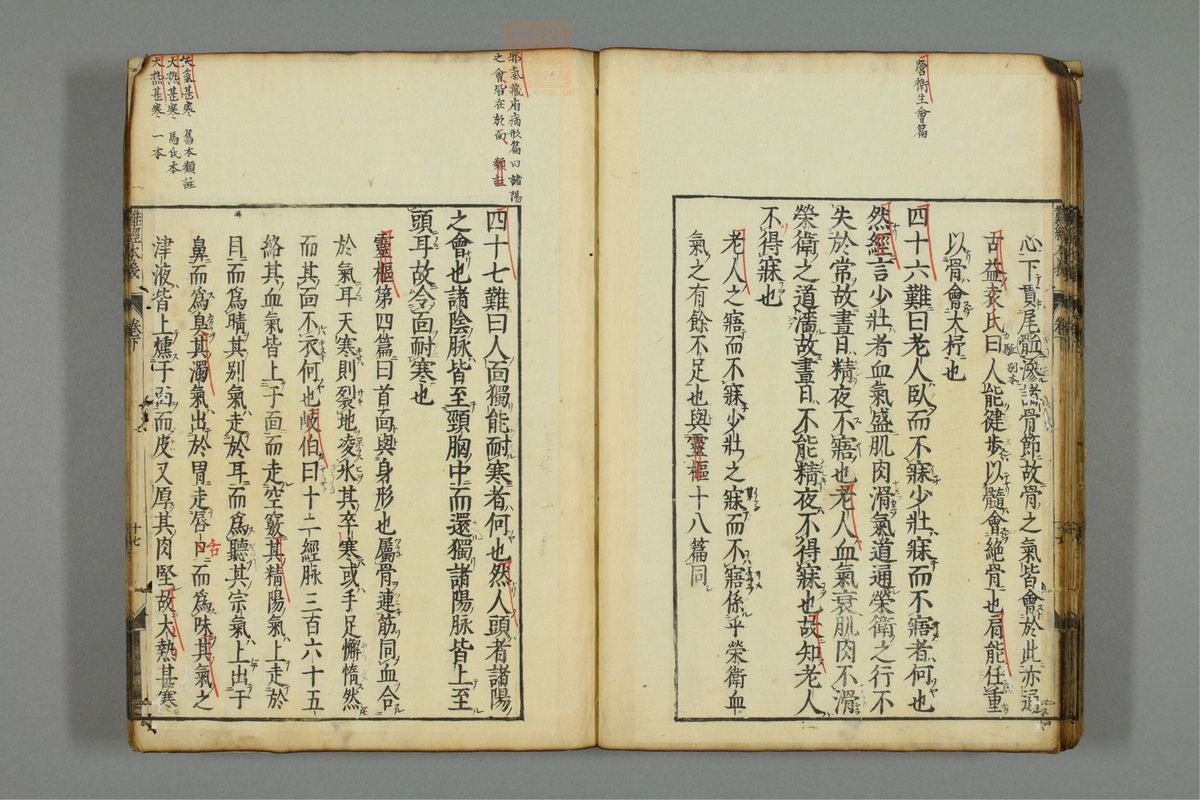 營衛生會篇
心下貫尾骶滲諸骨節故骨之氣皆會於此亦通
古益袁氏曰人能健步以髓會絕骨也肩能任重
以骨會大杼也
四十六難曰老人臥而不寐少壯寐而不寤者何也
然經言少壯者血氣盛肌肉滑氣道通榮衛之行不
失於常故晝日精夜不寤也老人血氣衰肌肉不滑
榮衛之道濇故晝日不能精夜不得寐也故知老人
不得寐也
老人之寤而不寐少壯之寐而不寤係乎榮衛血
氣之有餘不足也與靈樞十八篇同
邪氣藏府病形篇曰諸陽
之會皆在於面 類註
四十七難曰人面獨能耐寒者何也然人頭者諸陽
之會也諸陰脉皆至頸胸中而還獨諸陽脉皆上至
頭耳故令面耐寒也
靈樞第四篇曰首面與身形也屬骨連筋同血合
於氣耳天寒則裂地凌氷其卒寒或手足懈惰然
而其面不衣何也岐伯曰十二經脉三百六十五
絡其血氣皆上于面而走空竅其精陽氣上走於
目而爲睛其别氣走於耳而爲聽其宗氣上出于
鼻而爲臭其濁氣出於胃走唇口而爲味其氣之
津液皆上燻于面而皮又厚其肉堅故大熱甚寒
天氣甚寒 舊本類註
大熱甚寒 馬氏本
天熱甚寒 一本
難經本義 卷下
十七